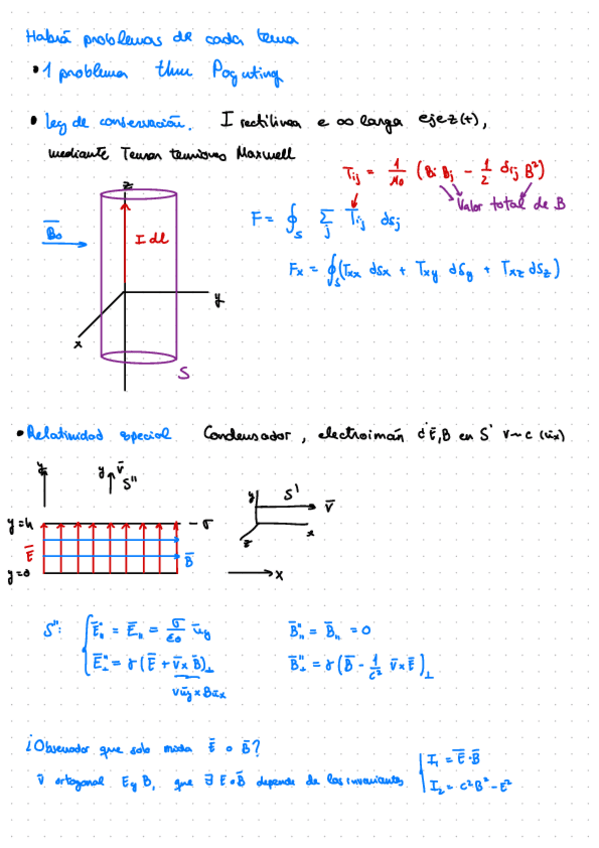 Habrá problemas de cada tema
• 1 problema thm Poynting
• ley de conservación. I rectilinea e ∞ larga eje z(+),
mediante Tensor tensiones Maxwell
T_ij = 1/μ0 (Bi Bj - 1/2 δij B²)
Valor total de B
z
B̄0
I dl
F = ∮_S Σ_j T_ij dSj
Fx = ∮_S (Txx dSx + Txy dSy + Txz dSz)
y
x
S
• Relatividad especial Condensador, electroimán ¿Ē, B̄ en S' v~c (ūx)
y
y v̄
S''
y S' v̄
x
z
y=h
-σ
Ē
B̄
y=0
x
S'': Ē''_∥ = Ē_∥ = σ/ε0 ūy
B̄''_∥ = B̄_∥ = 0
Ē''_⊥ = γ(Ē + v̄ x B̄)_⊥
B̄''_⊥ = γ(B̄ - 1/c² v̄ x Ē)_⊥
v ūy x B ūx
¿Observador que solo mida Ē o B̄?
v̄ ortogonal E y B, que ∃ E o B depende de los invariantes
I1 = Ē·B̄
I2 = c²B² - E²